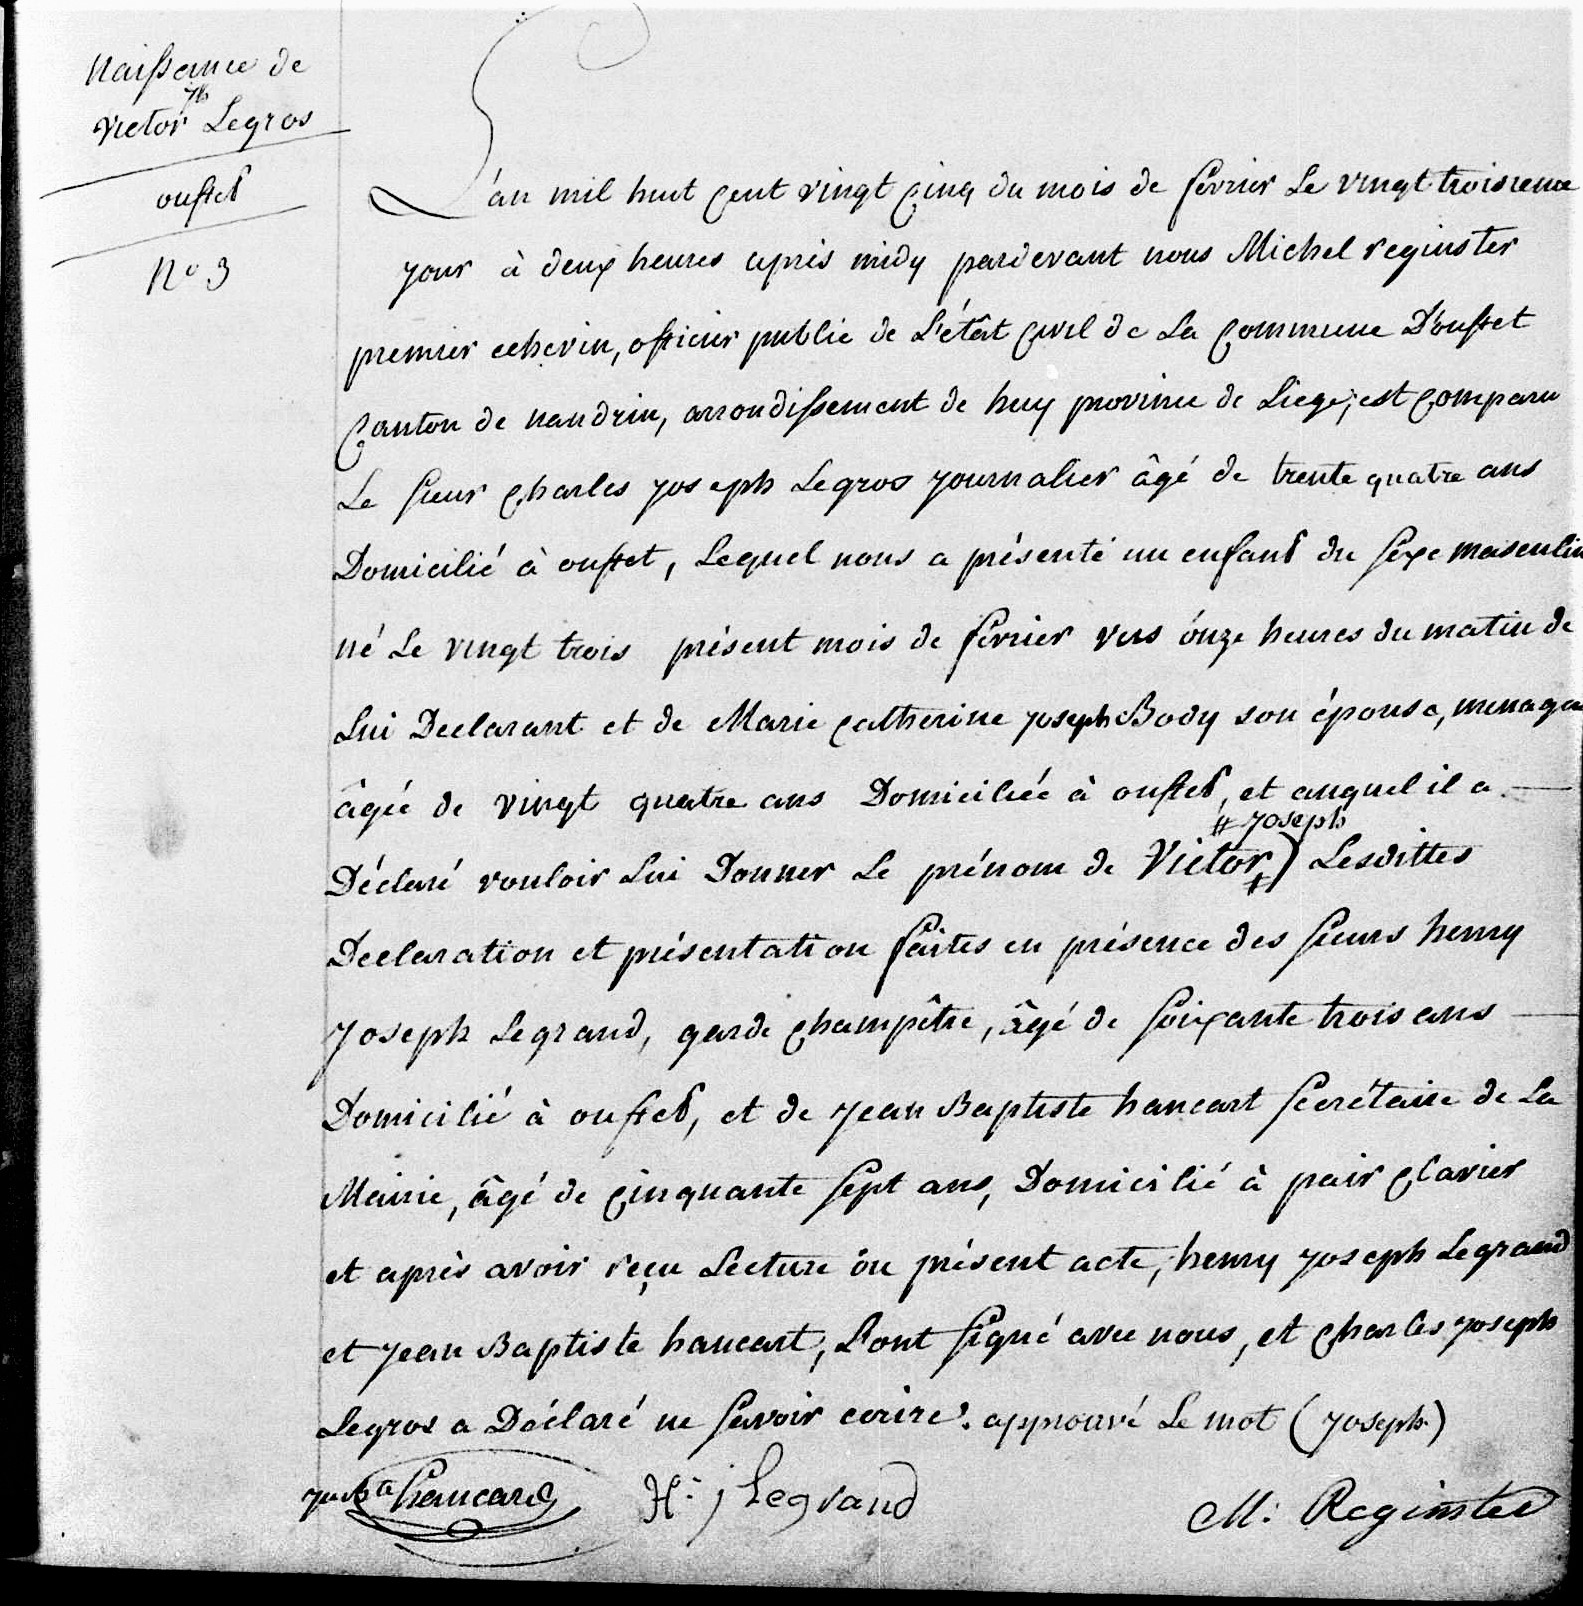 Naissance de
Jph
Victor Legros
ouffet
No 3
L'an mil huit cent vingt cinq du mois de février Le vingt troisieme
jour à deux heures après midy pardevant nous Michel reginster
premier echevin, officier public de L'étât Civil de La Commune D'ouffet
Canton de nandrin, arrondissement de huy province de Liege; est Comparu
Le sieur Charles joseph Legros journalier âgé de trente quatre ans
Domicilié à ouffet, Lequel nous a présenté un enfant du sexe masculin
né Le vingt trois présent mois de février vers onze heures du matin de
Lui Declarant et de Marie Catherine joseph Body son épouse, menagere
âgée de vingt quatre ans Domiciliée à ouffet, et auquel il a
# joseph
Déclaré vouloir Lui Donner Le prénom de Victor #) Lesdittes
Declaration et présentation faites en présence des sieurs henry
Joseph Legrand, garde Champêtre, âgé de soixante trois ans
Domicilié à ouffet, et de jean Baptiste hancart secrétaire de La
Mairie, âgé de Cinquante sept ans, Domicilié à pair Clavier
et après avoir reçu Lecture du présent acte, henry joseph Legrand
et jean Baptiste hancart, L'ont signé avec nous, et Charles joseph
Legros a Déclaré ne savoir ecrire. approuvé Le mot (joseph)
hancart H. j Legrand M: Reginster